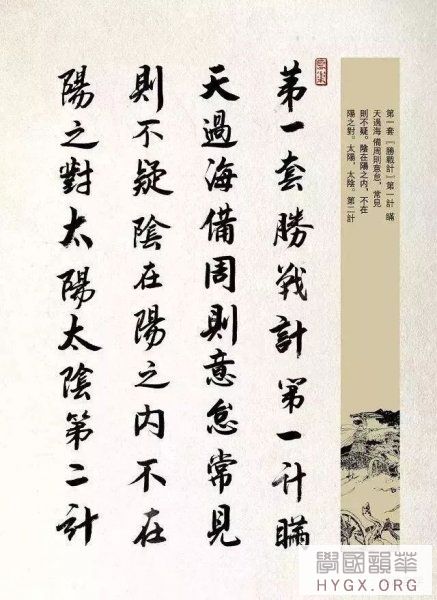 第一套『勝戰計』第一計 瞞
天過海 備周則意怠，常見
則不疑。陰在陽之内，不在
陽之對。太陽，太陰。第二計
第一套勝戰計第一计瞞
天過海備周則意怠常見
則不疑陰在陽之内不在
陽之對太陽太陰第二計
華韻國學
HYGX.ORG